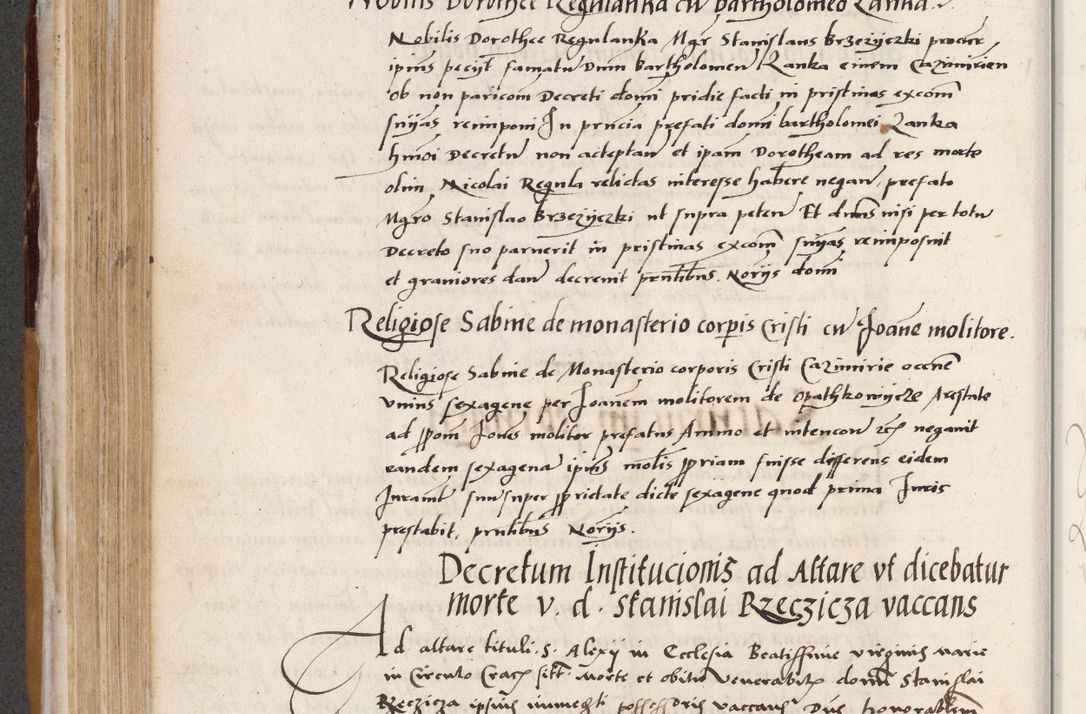 Nobilis Dorothee Regulanka cu Bartholomeo Kanka.
Nobilis Dorothee Regulanka Mgr Stanislaus Brzezyczki procur
ipius pecijt famatu Dnm Bartholomeu Kanka civem Cazimirien
ob non paricom Decreti domi pridie facti in pristinas excom
snias reimponi In pntia prefati domi bartholomei Kanka
hmoi Decretu non acceptan et ipam Dorotheam ad res morte
olim Nicolai Regula relictas interesse habere negan, prefato
Mgro Stanislao Brzezyczki ut supra peten Et dnus nisi per totu
Decreto suo paruerit in pristinas excom snias reimposuit
et graviores dan decrevit pntibus Norijs domi
Religiose Sabine de monasterio corpis Cristi cu Joane molitore.
Religiose Sabine de Monasterio corporis Cristi Cazimirie occne
unius sexagene per Joanem molitorem de Opathkowycze Arestate
ad ppom Jones molitor prefatus Animo et intencon etc negavit
eandem sexagena ipius molis ppriam fuisse differens eidem
Juramt suu super pprietate dicte sexagene quod prima Juris
prestabit, pntibus Norijs.
Decretum Institucionis ad Altare ut dicebatur
morte v. d. Stanislai Rzeczicza vaccans
Ad altare tituli S. Alexy in Ecclesia Beatissime virginis marie
in Circulo Crac sitt morte et obitu venerabilis domi Stanislai
Rzeczicza ipsius possessoris vaccans Dns honorabilem